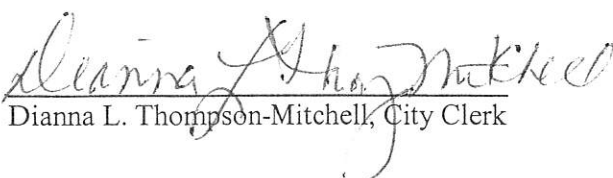 Dianna L. Thom Mitchell
Dianna L. Thompson-Mitchell, City Clerk